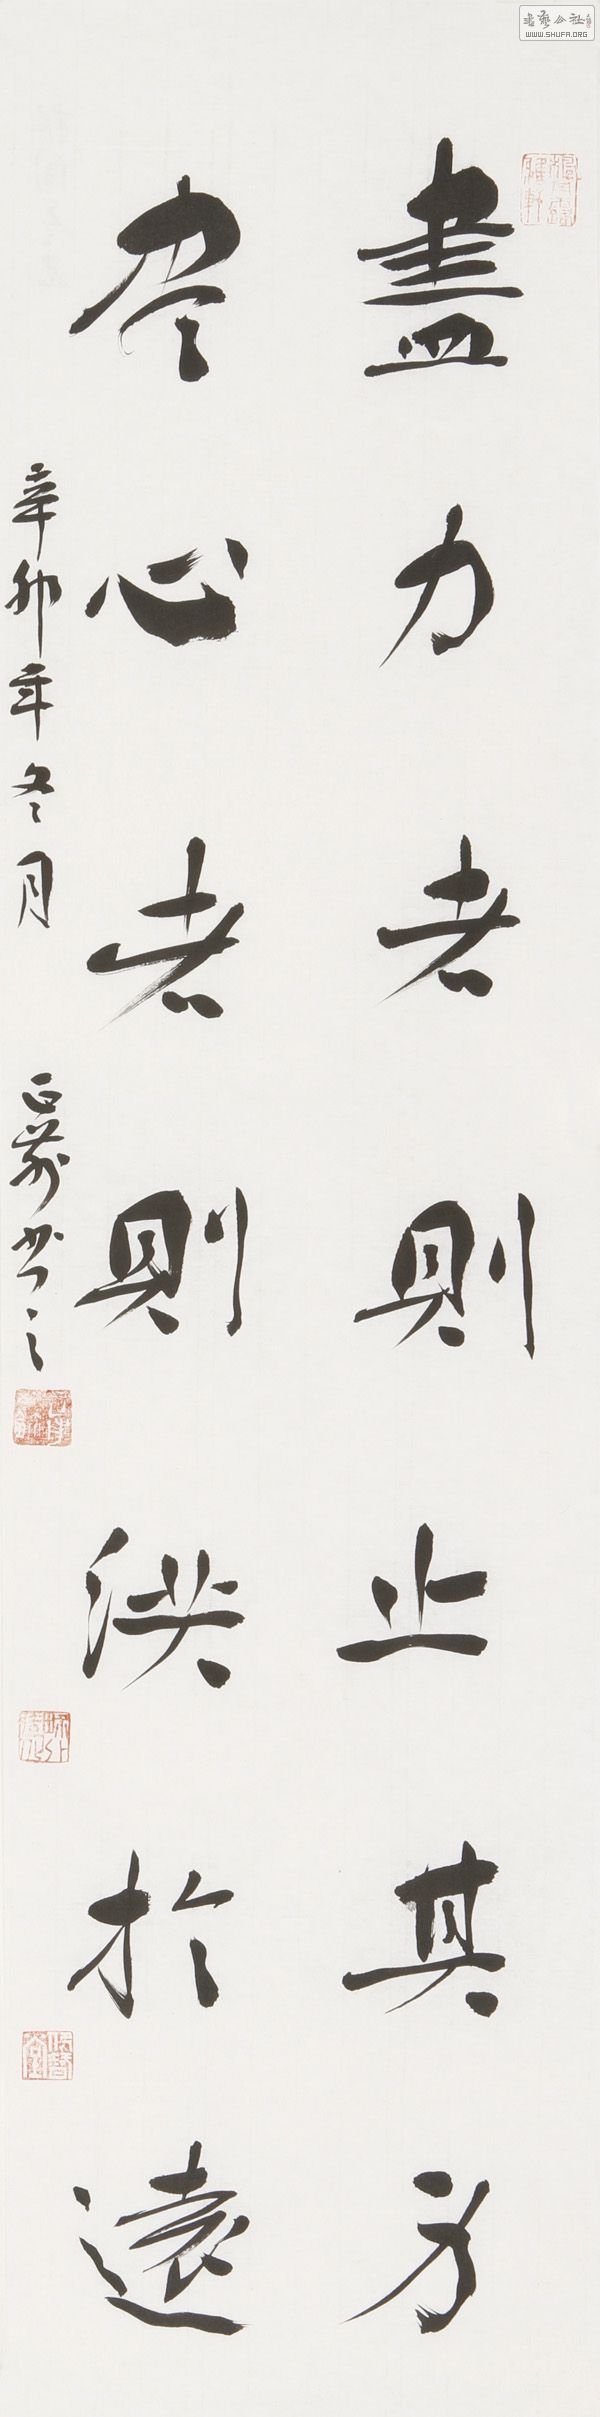 書藝公社
WWW.SHUFA.ORG
盡力者則止其身
尽心者則洪於遠
辛卯年冬月
书之